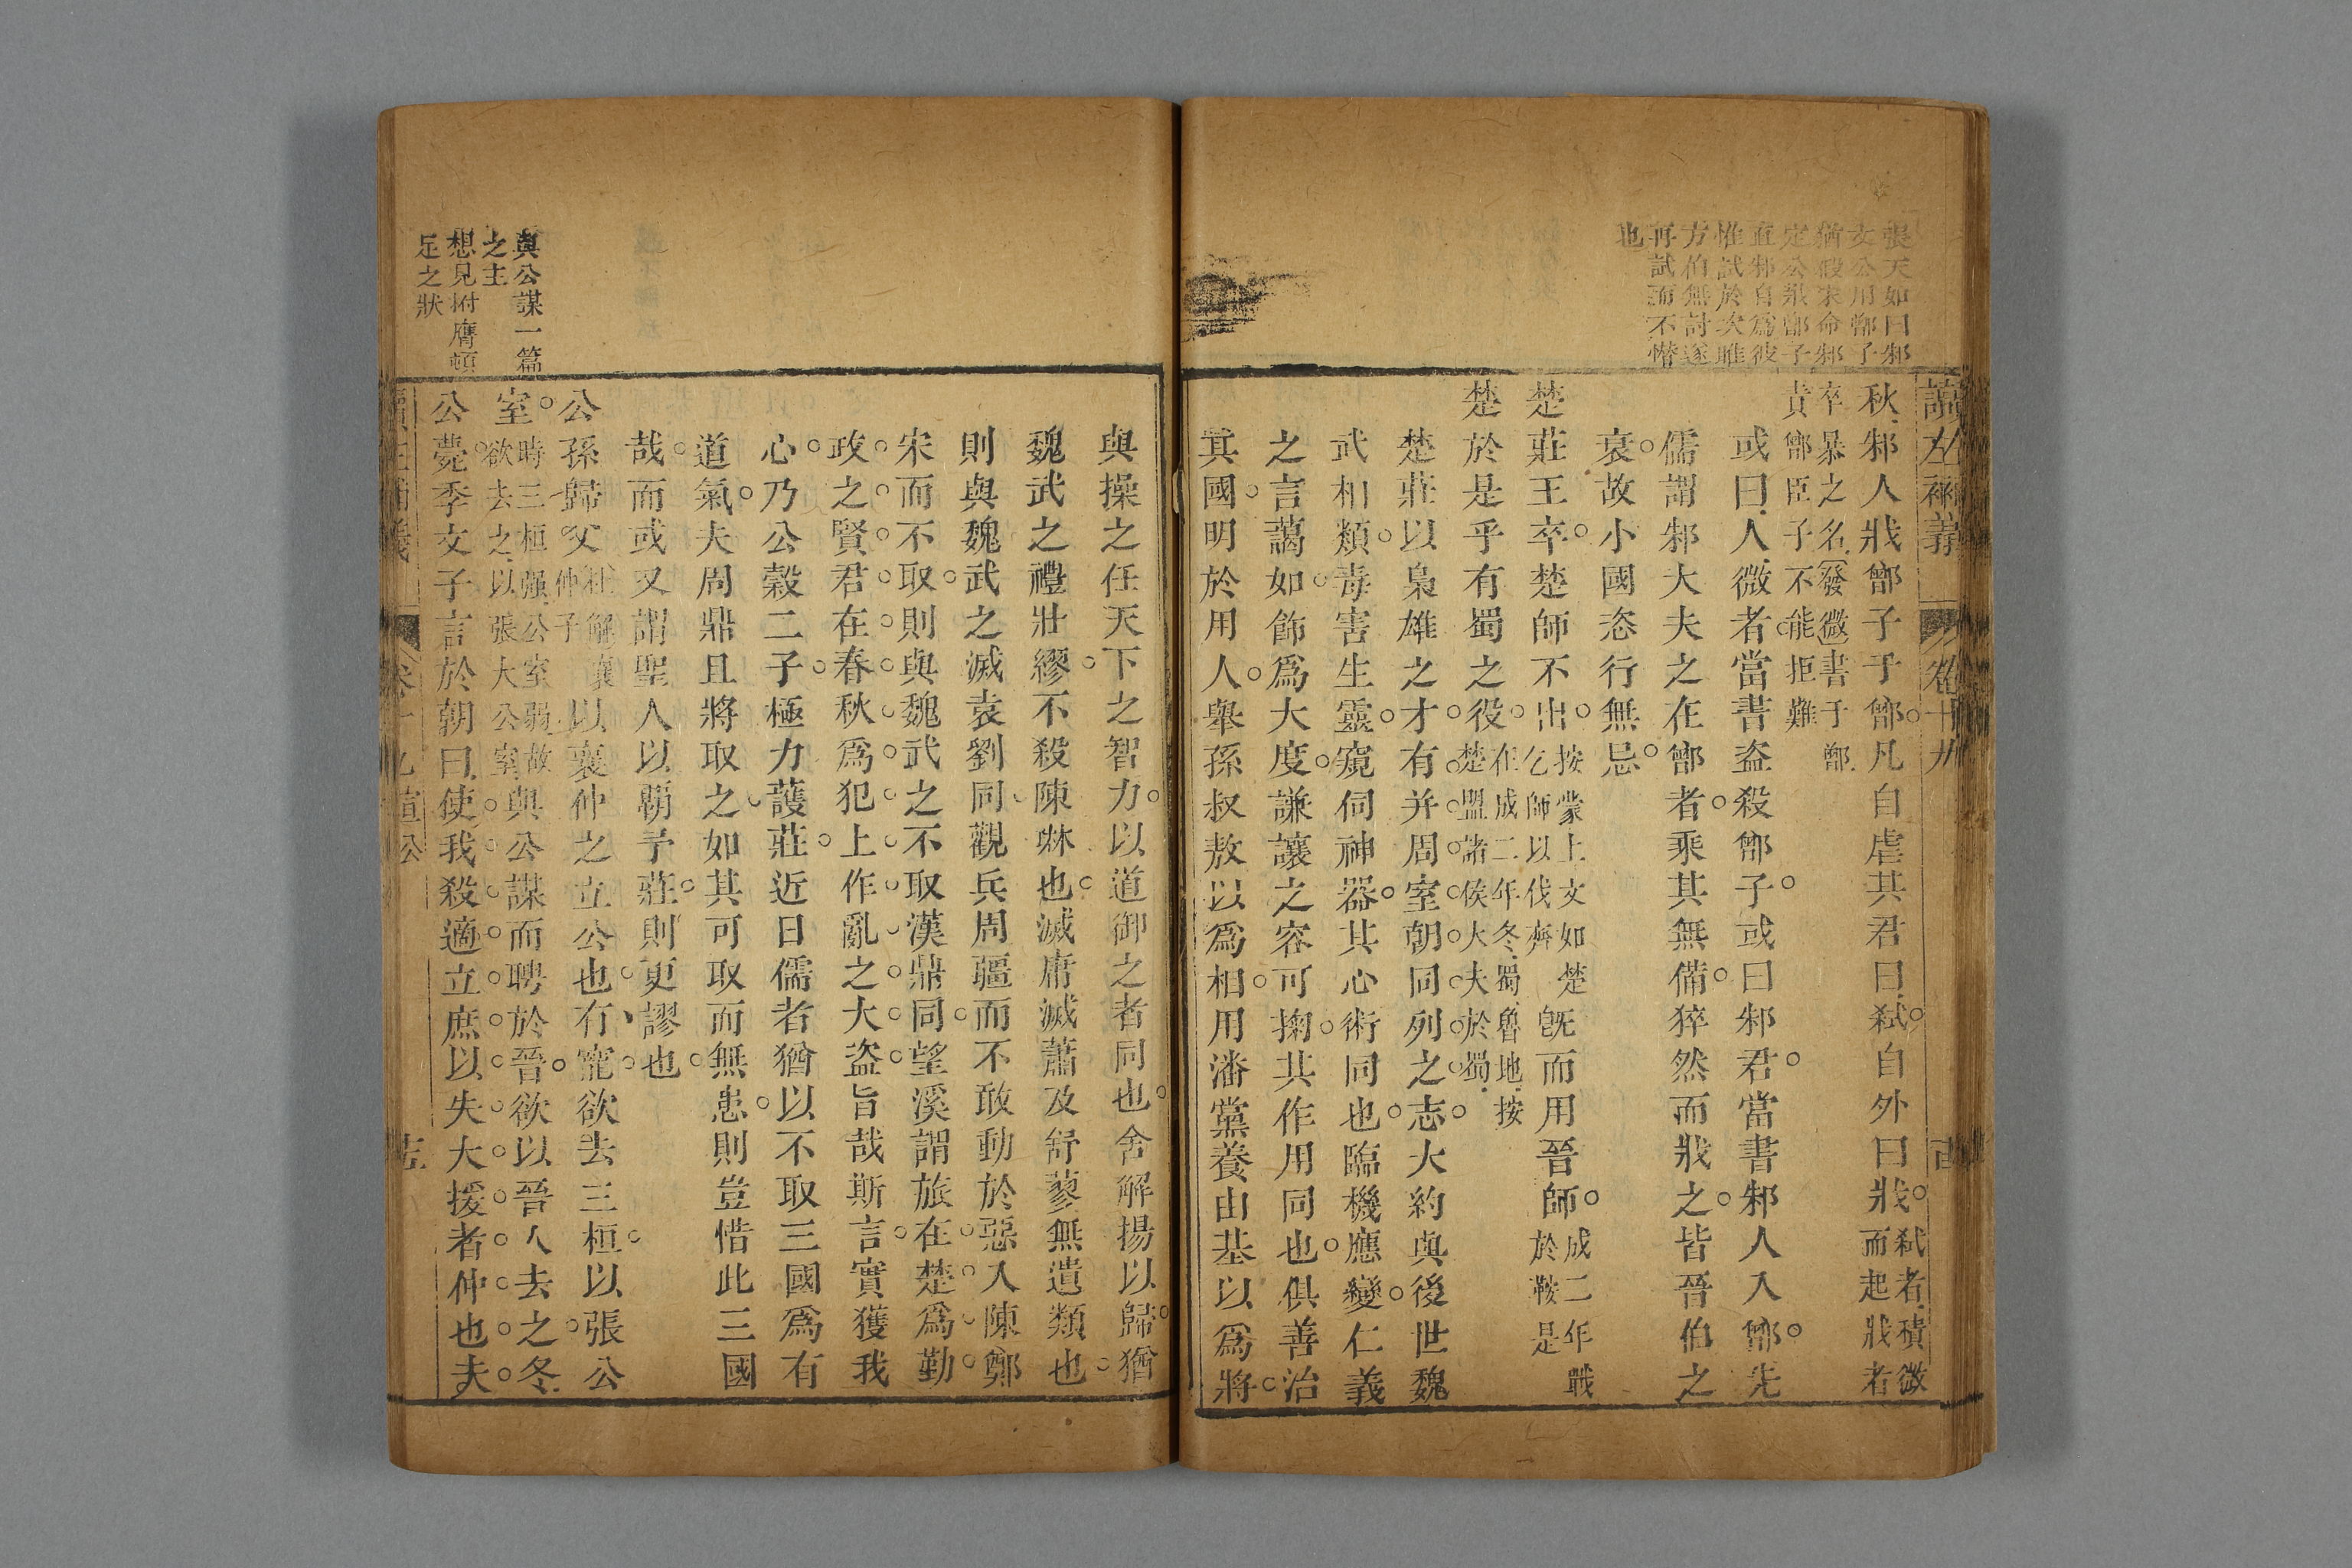 讀左補義
卷十九
張天如曰邾
文公用鄫子
猶假宋命邾
定公戕鄫子
直邾自為彼
惟試於次睢
方伯無討遂
再試而不憯
也
秋邾人戕鄫子于鄫凡自虐其君曰弒自外曰戕
弒者積微
而起戕者
卒暴之名發微書于鄫
責鄫臣子不能拒難
或曰人微者當書盜殺鄫子或曰邾君當書邾人入鄫先
儒謂邾大夫之在鄫者乘其無備猝然而戕之皆晉伯之
衰故小國恣行無忌
楚莊王卒楚師不出
按蒙上文如楚
乞師以伐齊
旣而用晉師
成二年戰
於鞍是
楚於是乎有蜀之役
在成二年冬蜀魯地按
楚盟諸侯大夫於蜀
楚莊以梟雄之才有并周室朝同列之志大約與後世魏
武相類毒害生靈窺伺神器其心術同也臨機應變仁義
之言藹如飾爲大度謙讓之容可掬其作用同也俱善治
其國明於用人舉孫叔敖以爲相用潘黨養由基以爲將
與操之任天下之智力以道御之者同也舍解揚以歸猶
魏武之禮壯繆不殺陳琳也滅庸滅蕭及舒蓼無遺類也
則與魏武之滅袁劉同觀兵周疆而不敢動於惡入陳鄭
宋而不取則與魏武之不取漢鼎同望溪謂旅在楚爲勤
政之賢君在春秋爲犯上作亂之大盜旨哉斯言實獲我
心乃公穀二子極力護莊近日儒者猶以不取三國爲有
道氣夫周鼎且將取之如其可取而無患則豈惜此三國
哉而或又謂聖人以霸予莊則更謬也
公孫歸父
杜解襄
仲子
以襄仲之立公也有寵欲去三桓以張公
室
時三桓强公室弱故
欲去之以張大公室
與公謀而聘於晉欲以晉人去之冬
公薨季文子言於朝曰使我殺適立庶以失大援者仲也夫
與公謀一篇
之主
想見拊膺頓
足之狀
宣公